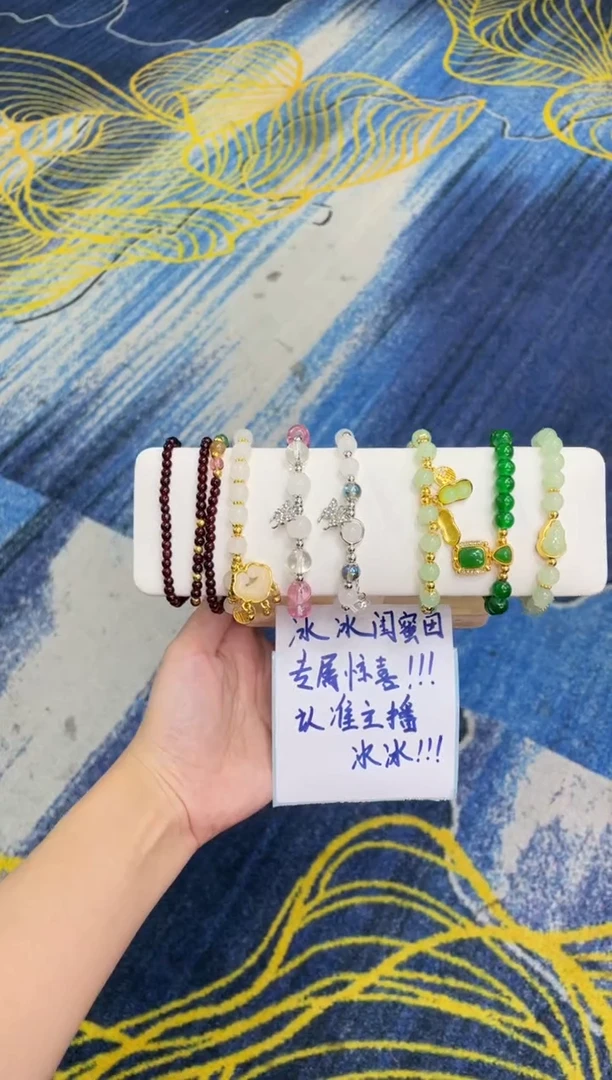 冰冰闺蜜团
专属惊喜!!!
认准主播
冰冰!!!